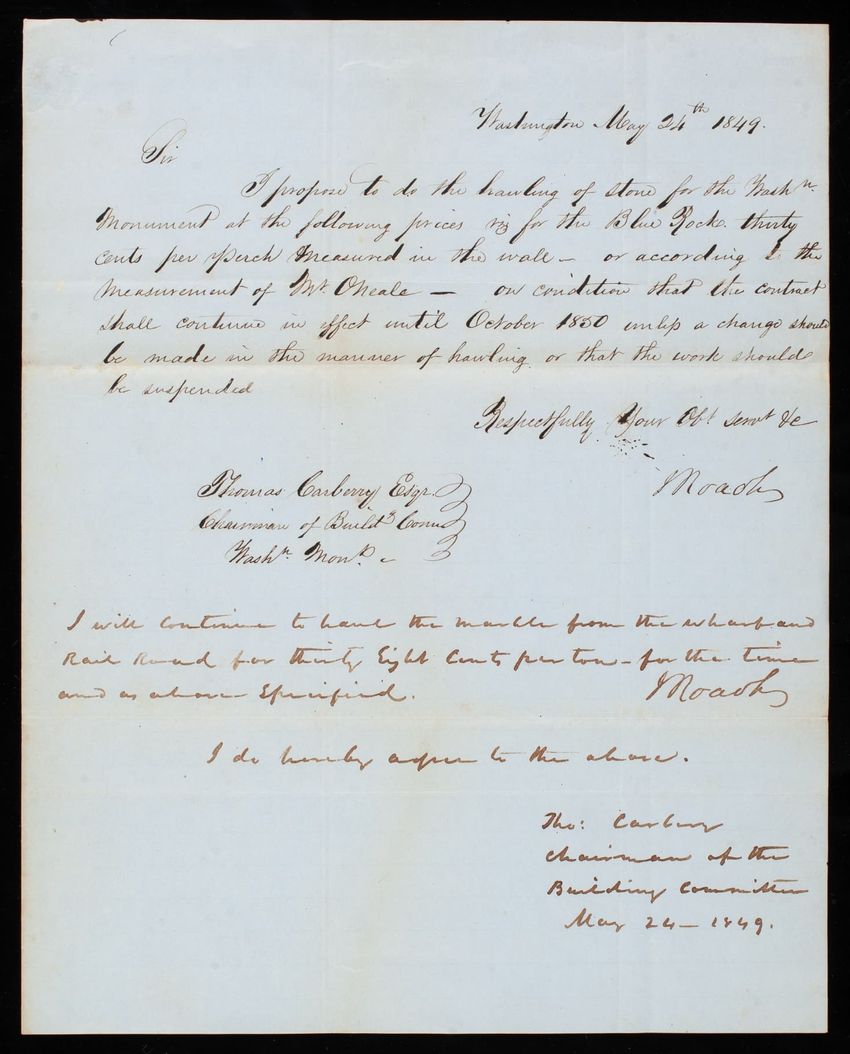 Washington May 24th 1849.
Sir
I propose to do the hawling of stone for the Washn.
Monument at the following prices viz for the Blue Rock. thirty
cents per Perch Measured in the wall - or according to the
measurement of Mr. ONeale - on condition that the contract
shall continue in effect until October 1850 unless a change should
be made in the manner of hawling. or that the work should
be suspended
Respectfully Your Obt Servt &c
J Roach
Thomas Carberry Esqr.
Chairman of Buildg Come
Washn. Mont.
I will continue to haul the marble from the wharf and
Rail Road for thirty Eight Cents per ton - for the time
and as above Specified.
J Roach
I do hereby agree to the above.
Tho: Carbery
Chairman of the
Building Committee
May 24 - 1849.